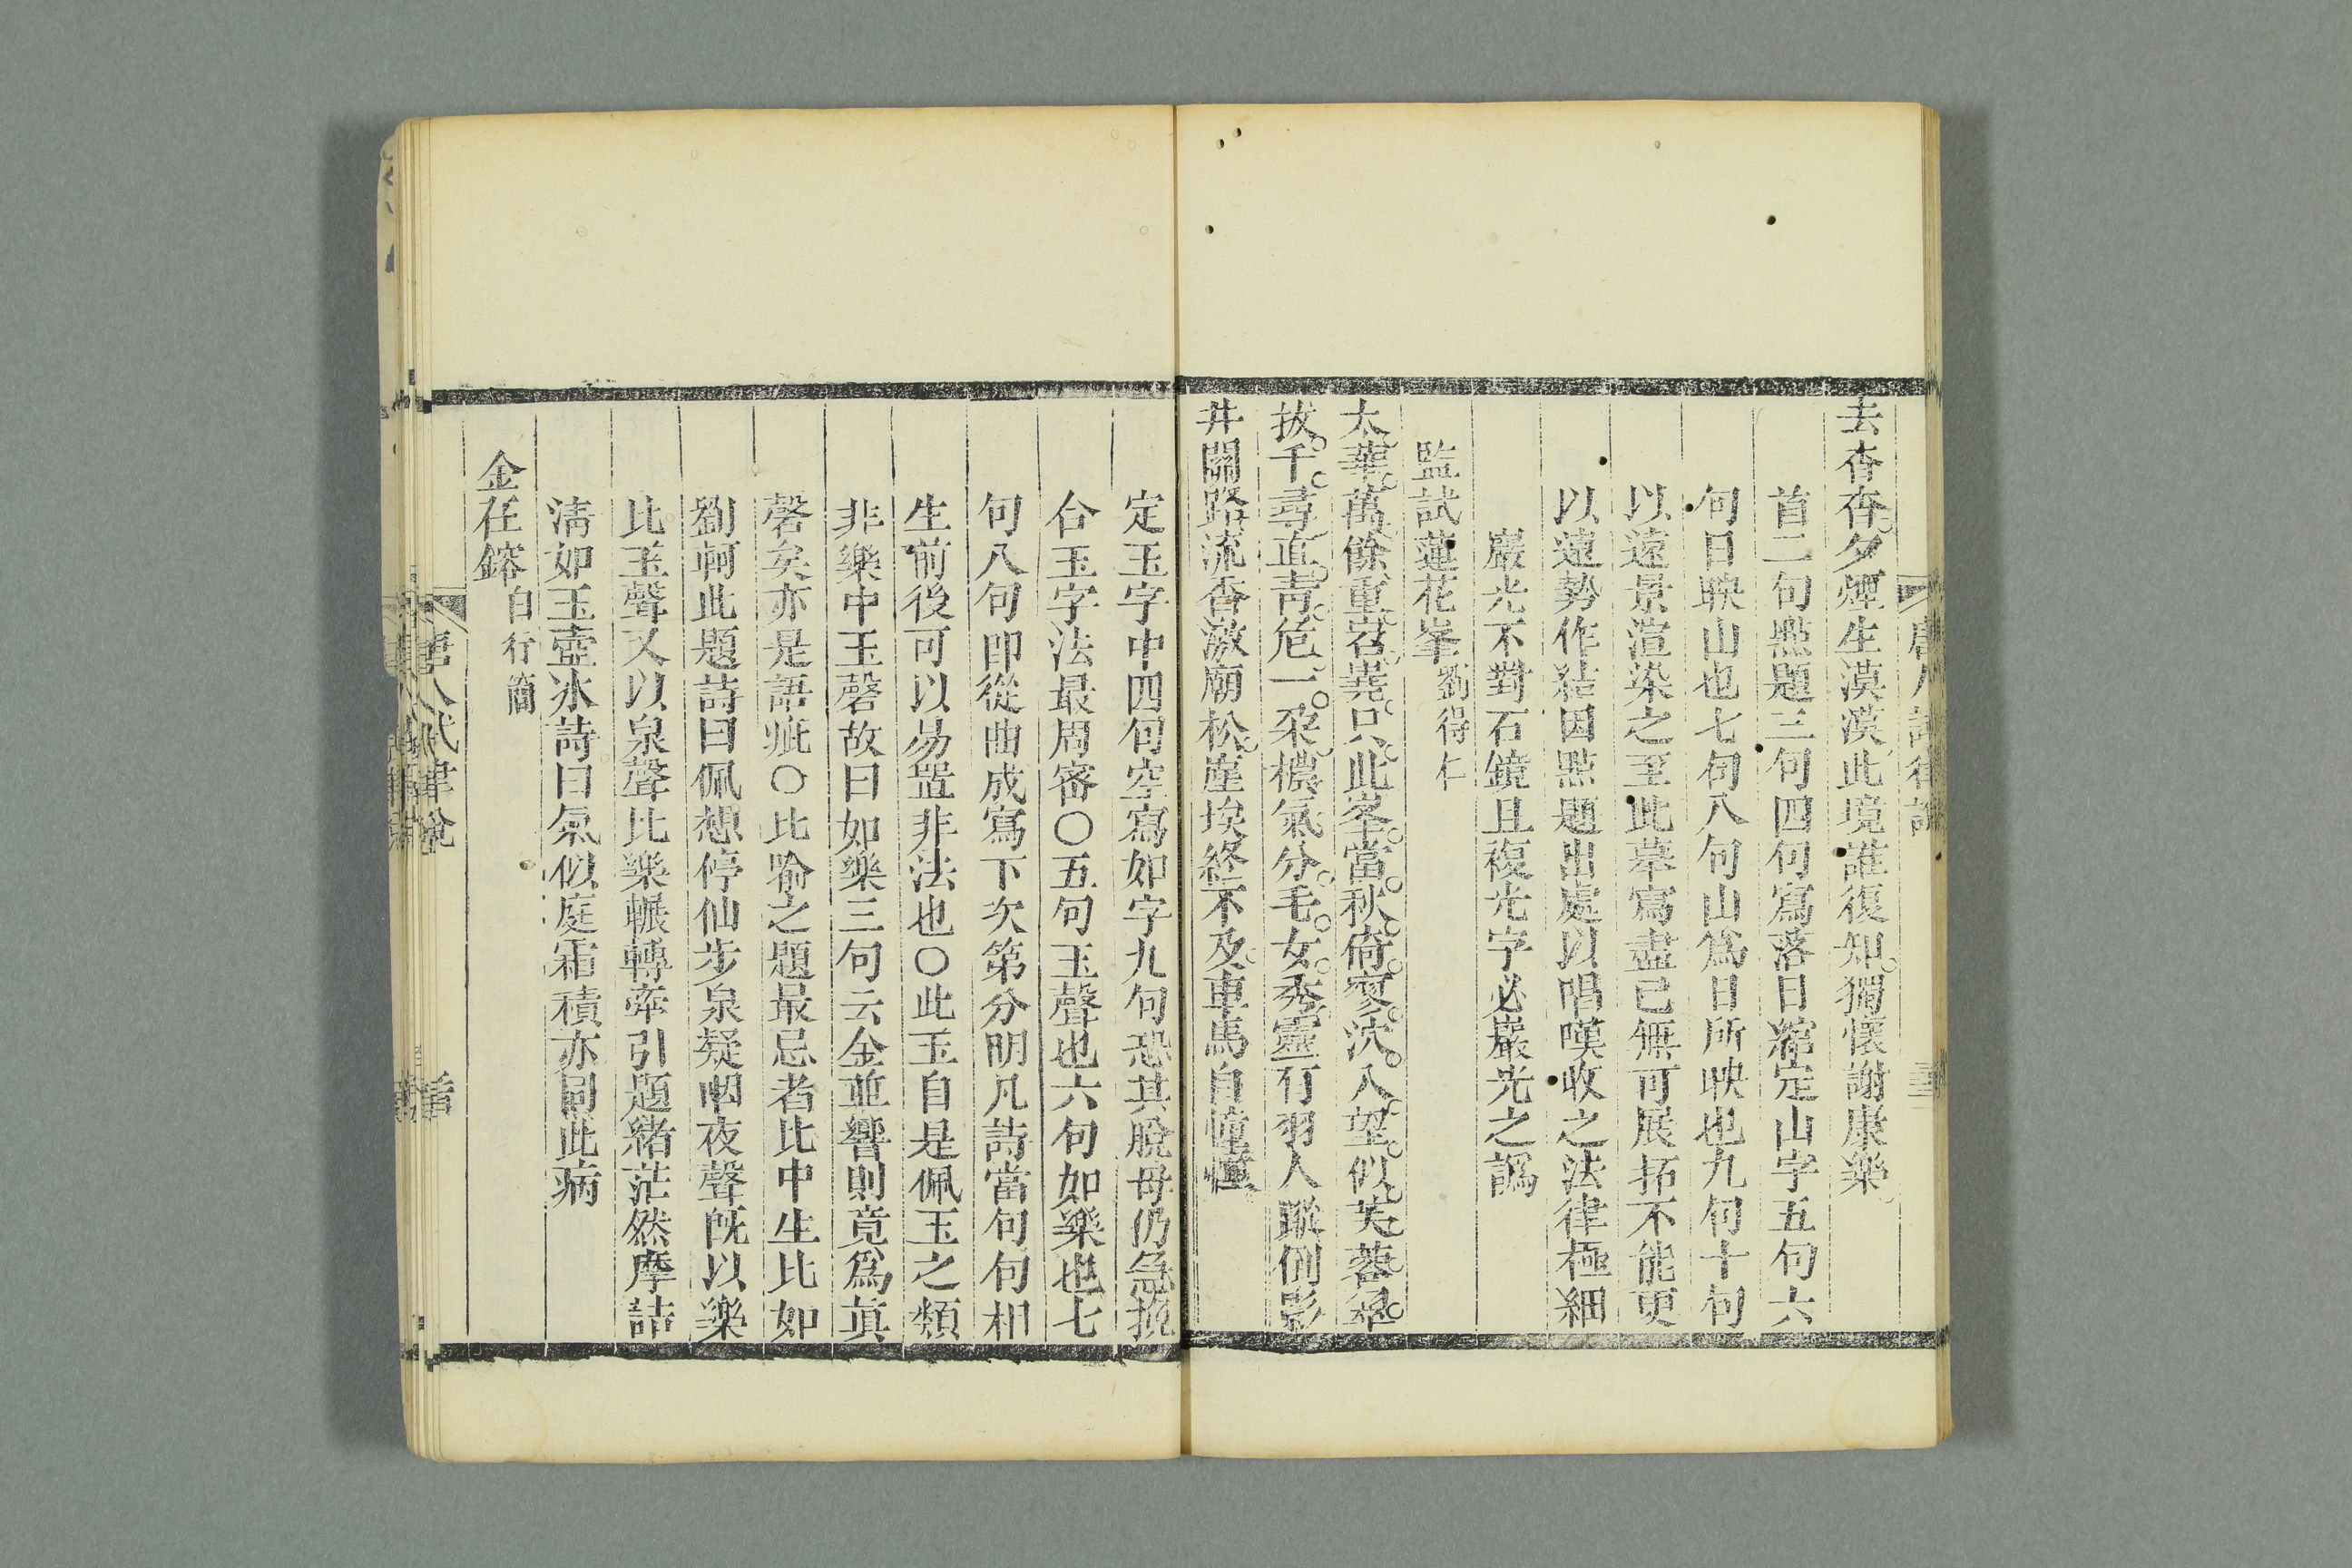 去杳杳夕煙生漠漠此境誰復知獨懷謝康樂
首二句點題三句四句寫落日綰定山字五句六
句日映山也七句八句山爲日所映也九句十句
以遠景渲染之至此摹寫盡已無可展拓不能更
以遠勢作結因點題出處以唱嘆收之法律極細
巖光不對石鏡且複光字必巖光之譌
監試蓮花峯劉得仁
太華萬餘重岧嶤只此峯當秋倚寥泬入望似芙蓉翠
拔千尋直靑危一朵穠氣分毛女秀靈有羽人蹤倒影
井關路流香激廟松崖埃終不及車馬自憧憧
定玉字中四句空寫如字九句恐其脫母仍急挽
合玉字法最周密○五句玉聲也六句如樂也七
句八句卽從曲成寫下次第分明凡詩當句句相
生前後可以易置非法也○此玉自是佩玉之類
非樂中玉磬故曰如樂三句云金並響則竟爲眞
磬矣亦是語疵○比喻之題最忌者比中生比如
劉軻此題詩曰佩想停仙步泉疑咽夜聲旣以樂
比玉聲又以泉聲比樂輾轉牽引題緒茫然摩詰
淸如玉壺冰詩曰氣似庭霜積亦同此病
金在鎔白行簡